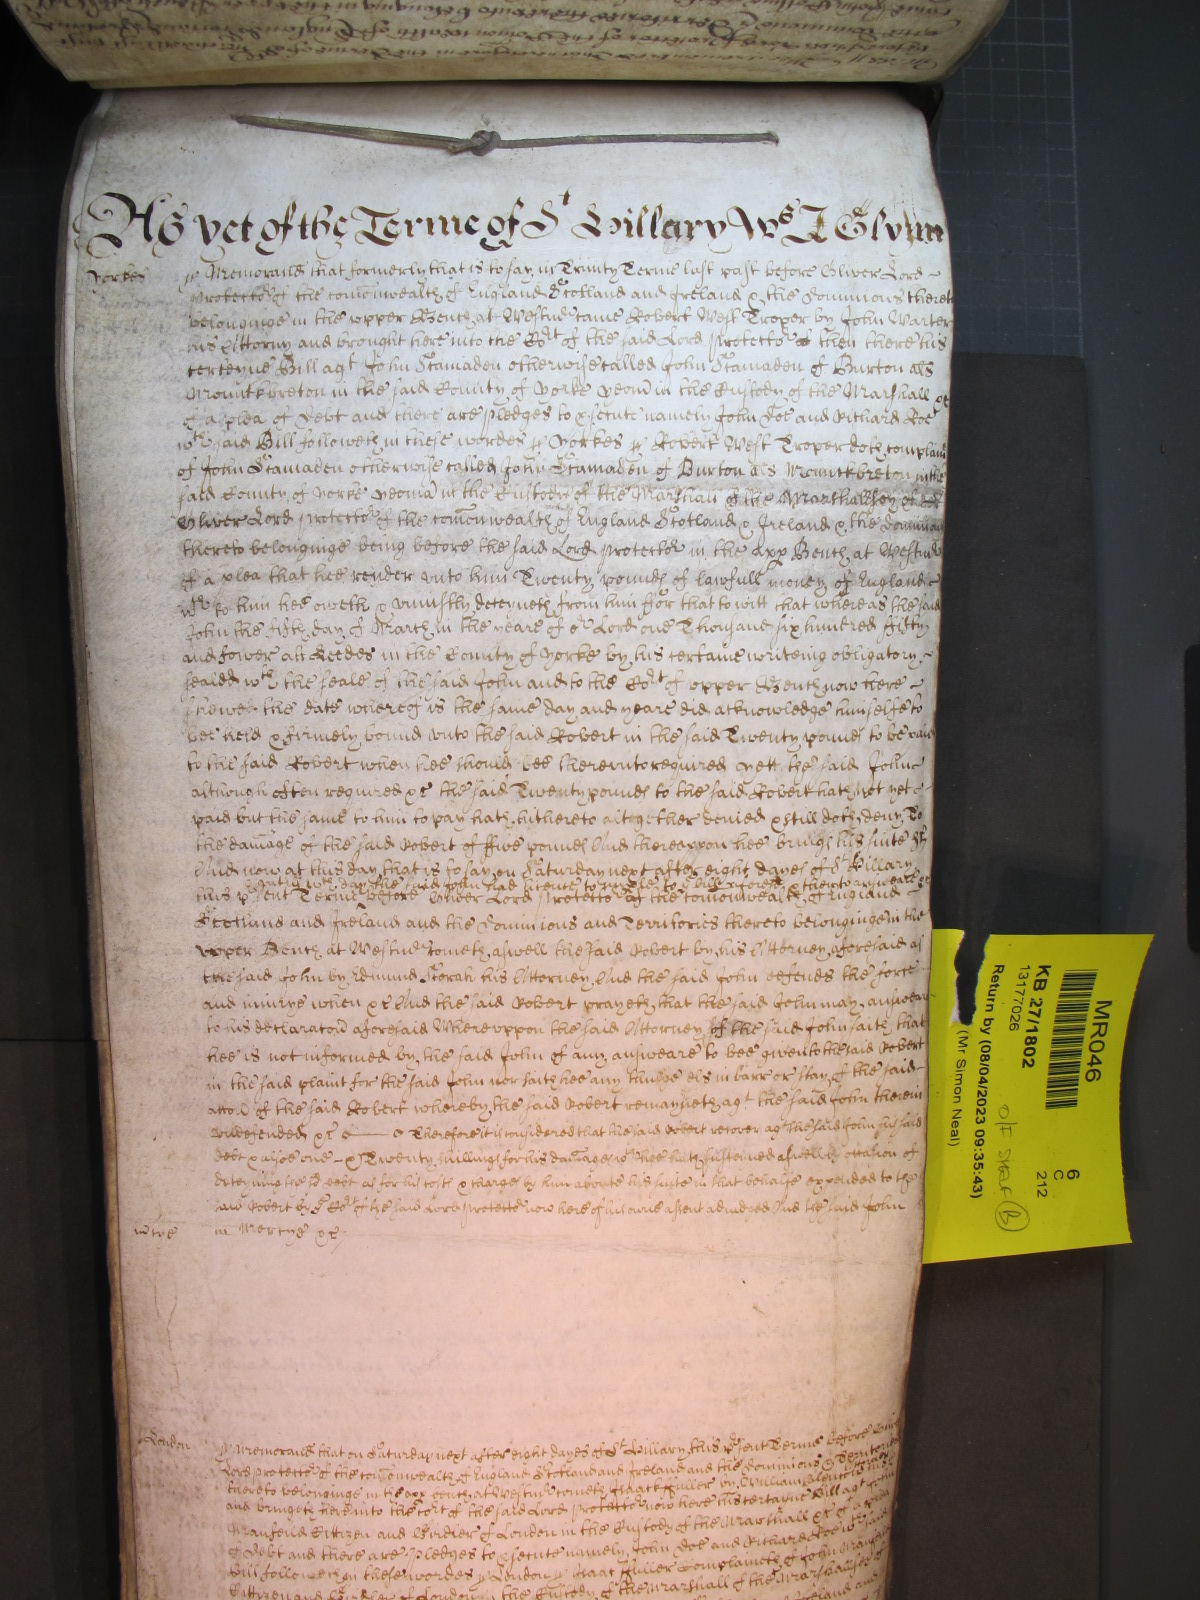 As yet of the Terme of St Hillary Ws J Glynn
Yorkes
Memorand that formerly that is to say in Trinity Terme last past before Oliver Lord
Protector of the comonwealth of England Scotland and Ireland & the Dominions thereto
belonginge in the upper Bench at Westmr came Robert West Draper by John Warter
his Attorny and brought here into the Cort of the said Lord Protector then there his
certeyne Bill agt John Stamaden otherwise called John Stamaden of Burton als
Mounckbreton in the said County of Yorke yeom in the Custody of the Marshall &c
of a plea of Debt and there are pledges to psecute namely John Doe and Richard Roe
wch said Bill followeth in these wordes ss Yorkes ss Robert West Draper doth complaine
of John Stamaden otherwise called John Stamaden of Burton als Mounckbreton in the
said County of Yorke yeoman in the Custody of the Marshall of the Marshallsey of
Oliver Lord Protector of the comonwealth of England Scotland & Ireland & the Dominions
thereto belonginge being before the said Lord Protector in the upp Bench at Westmr
of a plea that hee render unto him Twenty pounds of lawfull money of England
wch to him hee oweth & uniustly deteyneth from him ffor that to witt that whereas the said
John the fifth day of March in the yeare of or Lord one Thousand six hundred fifty
and fower att Leedes in the County of Yorke by his certaine writeing obligatory
sealed wth the seale of the said John and to the Cort of upper Bench now here
shewed the date whereof is the same day and yeare did acknowledge himselfe to
bee held & firmely bound unto the said Robert in the said Twenty pounds to be paid
to the said Robert when hee should bee thereunto required yett the said John
although often required &c the said Twenty pounds to the said Robert hath not yet
paid but the same to him to pay hath hithereto altogether denied & still doth deny To
the damage of the said Robert of ffive pounds And thereuppon hee brings his suite &c
And now at this day that is to say on Saturday next after eight dayes of St Hillary
untill wch day the said John had licence to imparle to the bill aforesaid & then to answeare &c
this psent Terme before Oliver Lord Protector of the comonwealth of England
Scotland and Ireland and the Dominions and Territories thereto belonginge in the
upper Bench at Westmr cometh aswell the said Robert by his Attorney aforesaid as
the said John by Edmund Borah his Attorney And the said John defends the force
and iniurye when &c And the said Robert prayeth that the said John may answeare
to his declaraton aforesaid Whereuppon the said Attorney of the said John saith that
hee is not informed by the said John of any answeare to bee given to the said Robert
in the said plaint for the said John nor saith hee any thinge els in barr or stay of the said
accon of the said Robert whereby the said Robert remayneth agt the said John therein
undefended &c Therefore it is considered that the said Robert recover agt the said John his said
debt & alsoe one & Twenty shillings for his damages wch hee hath susteined aswell by occasion of
deteyning the sd debt as for his costs & charges by him aboute his suite in that behalfe expended to the
said Robert by ye Cort of the said Lord Protector now here of his owne assent adiudged And the said John
in mercye &c
London
Memorand that on Saturday next after eight dayes of St Hillary this psent Terme before Oliver
Lord Protector of the comonwealth of England Scotland and Ireland and the dominions & Territories
thereto belonginge in the upp bench at Westmr cometh Isaack ffuller by William
and bringeth here into the cort of the said Lord Protector now here his certayne Bill agt John
Manfeild Cittizen and Girdler of London in the Custody of the Marshall &c of a plea
of Debt and there are pledges to psecute namely John Doe and Richard Roe wch said
Bill followeth in these wordes ss London ss Isaac ffuller complaineth of John Manfeild
Cittizen and Girdler of London in the Custody of the Marshall of the Marshallsey of
MR046
6
C
212
KB 27/1802
13177026
Return by (08/04/2023 09:35:43)
(Mr Simon Neal)
O/F Staff (B)